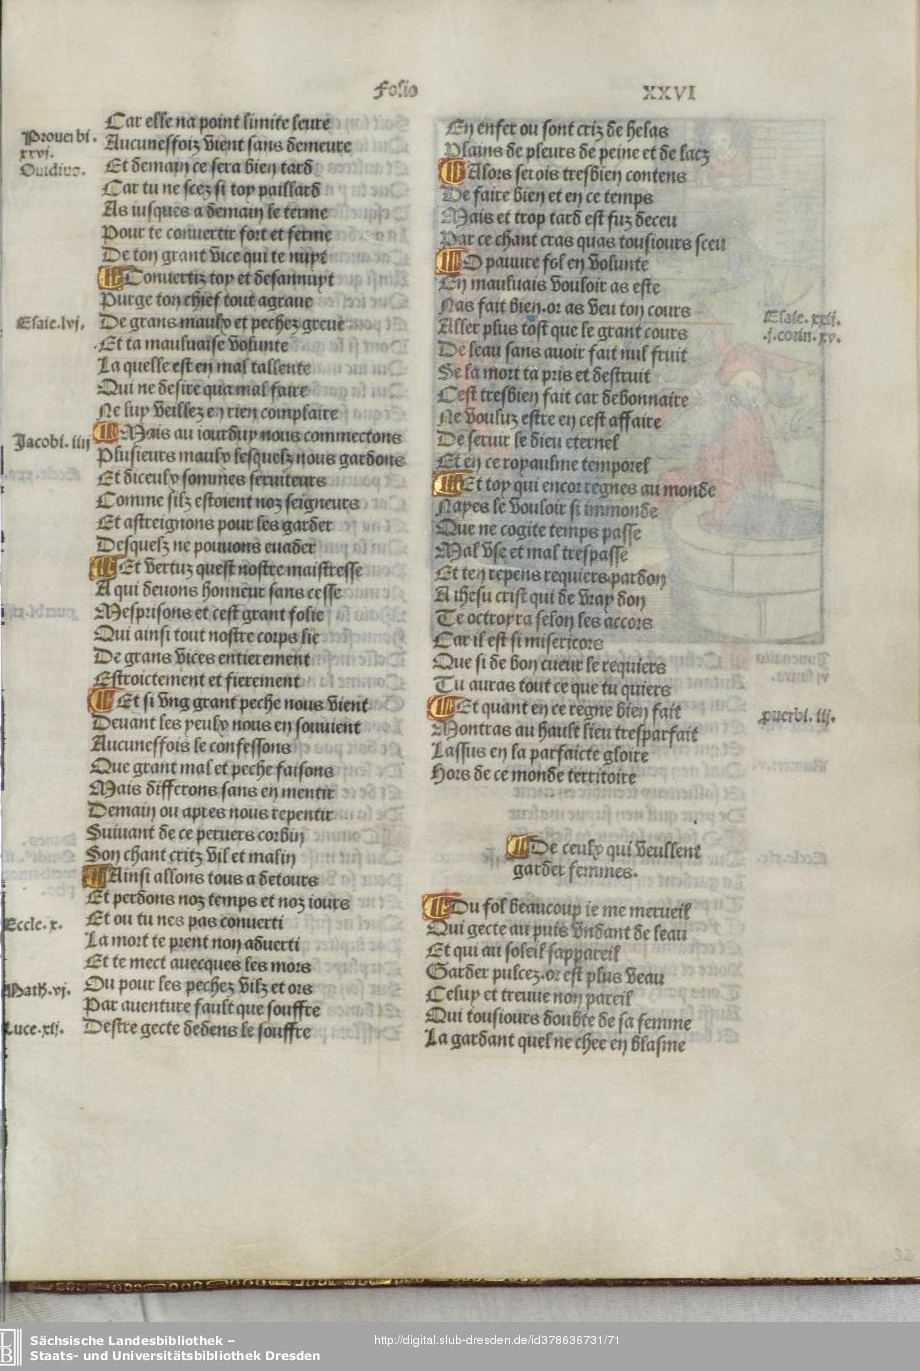 Folio XXVI
Prouerbi.
xxvi.
Ouidius.
Esaie.lvj.
Jacobi.iiij
Eccle.x.
Math.vj.
Luce.xij.
Car elle na point limite seure
Aucuneffoiz vient sans demeure
Et demain ce sera bien tard
Car tu ne scez si toy paillard
As iusques a demain le terme
Pour te conuertir fort et ferme
De ton grant vice qui te nuyt
Conuertiz toy et desannuyt
Purge ton chief tout agraue
De grans maulx et pechez greue
Et ta mauluaise volunte
La quelle est en mal tallente
Qui ne desire qua mal faire
Ne luy veillez en rien complaire
Mais au iourduy nous commectons
Plusieurs maulx lesquelz nous gardons
Et diceulx sommes seruiteurs
Comme silz estoient noz seigneurs
Et astreignons pour les garder
Desquelz ne pouuons euader
Et vertuz quest nostre maistresse
A qui deuons honneur sans cesse
Mesprisons et cest grant folie
Qui ainsi tout nostre corps lie
De grans vices entierement
Estroictement et fierement
Et si vng grant peche nous vient
Deuant les yeulx nous en souuient
Aucuneffois le confessons
Que grant mal et peche faisons
Mais differons sans en mentir
Demain ou apres nous repentir
Suiuant de ce peruers corbin
Son chant critz vil et malin
Ainsi allons tous a detours
Et perdons noz temps et noz iours
Et ou tu nes pas conuerti
La mort te prent non aduerti
Et te mect auecques les mors
Ou pour les pechez vilz et ors
Par auenture fault que souffre
Destre gecte dedens le souffre
En enfer ou sont criz de helas
Plains de pleurs de peine et de lacz
Alors serois tresbien contens
De faire bien et en ce temps
Mais et trop tard est fuz deceu
Par ce chant cras quas tousiours sceu
O pauure fol en volunte
En mauluais vouloir as este
Nas fait bien.or as veu ton cours
Aller plus tost que le grant cours
De leau sans auoir fait nul fruit
Se la mort ta pris et destruit
Cest tresbien fait car debonnaire
Ne vouluz estre en cest affaire
De seruir le dieu eternel
Et en ce royaulme temporel
Et toy qui encor regnes au monde
Nayes le vouloir si immonde
Que ne cogite temps passe
Mal vse et mal trespasse
Et ten repens requiers pardon
A ihesu crist qui de vray don
Te octroyra selon les accors
Car il est si misericors
Que si de bon cueur le requiers
Tu auras tout ce que tu quiers
Et quant en ce regne bien fait
Montras au hault lieu tresparfait
Lassus en la parfaicte gloire
Hors de ce monde territoire
Esaie.xxij.
.j.corin.xv.
puerbi.iij.
De ceulx qui veullent
garder femmes.
Du fol beaucoup ie me merueil
Qui gecte au puis vndant de leau
Et qui au soleil sappareil
Garder pulcez.or est plus veau
Celuy et treuue non pareil
Qui tousiours doubte de sa femme
La gardant quel ne chee en blasme
Sächsische Landesbibliothek –
Staats- und Universitätsbibliothek Dresden
http://digital.slub-dresden.de/id378636731/71